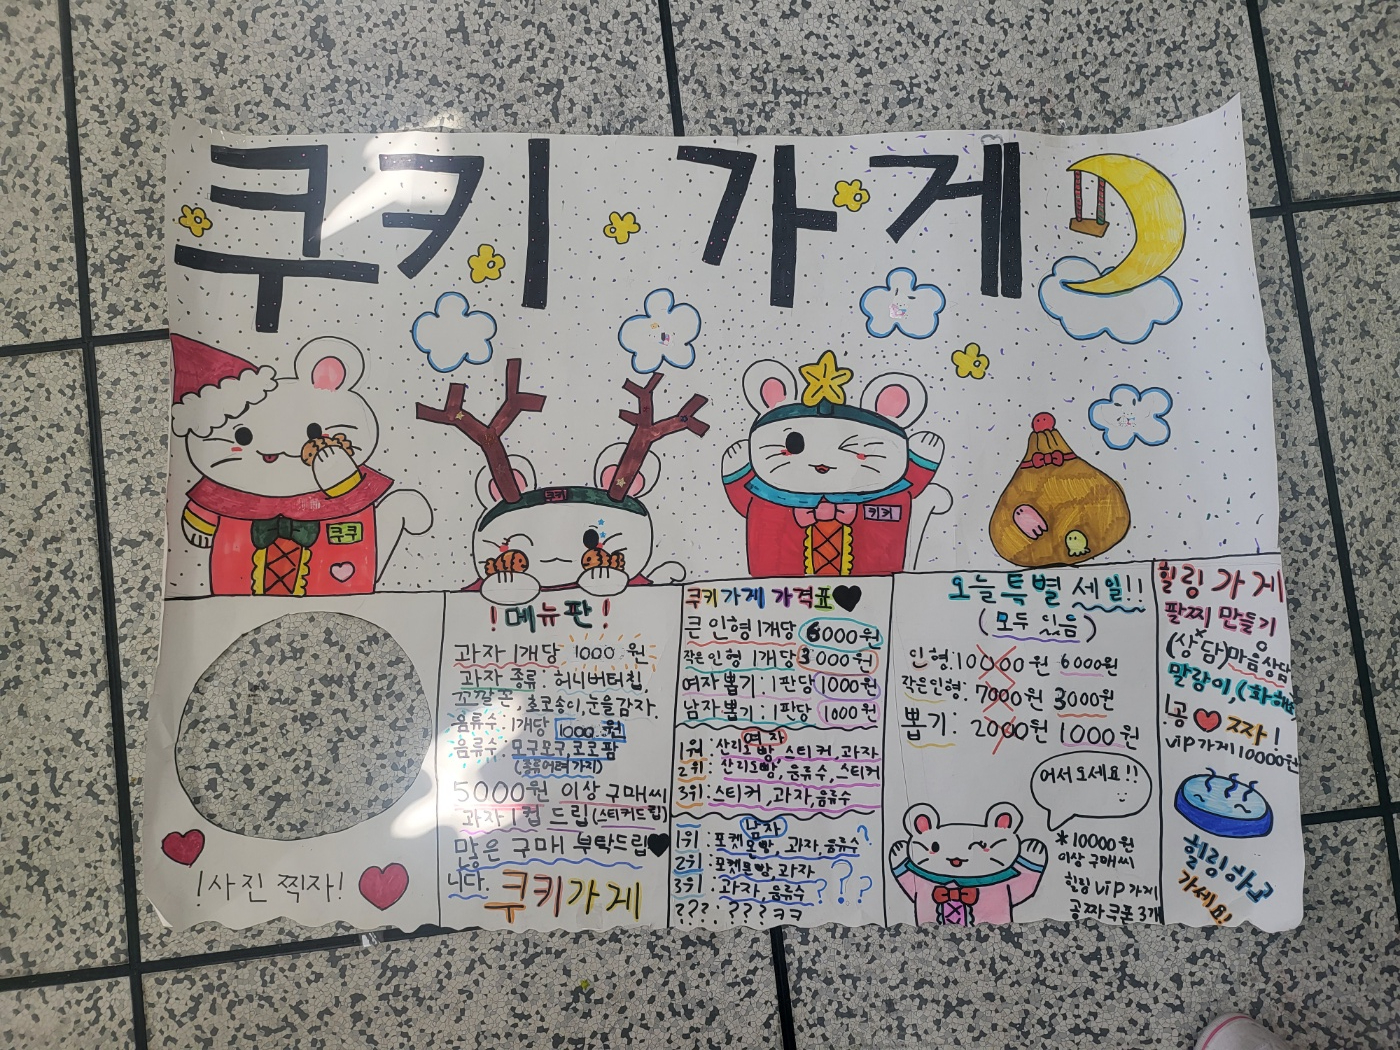 쿠키 가게
쿠쿠
쿠키
키키
!사진 찍자!
!메뉴판!
과자 1개당 1000원
과자 종류: 허니버터칩,
꼬깔콘, 초코송이, 눈을감자.
음류수: 1개당 1000원
음류수: 모구모구, 코코팜
(종류여려가지)
5000원 이상 구매씨
과자 1컵 드립(스티커드립)
많은 구매 부탁드립
니다.
쿠키가게
쿠키가게 가격표
큰 인형 1개당 6000원
작은인형 1개당 3000원
여자뽑기: 1판당 1000원
남자뽑기: 1판당 1000원
여자
1위: 산리오빵, 스티커, 과자
2위: 산리오빵, 음류수, 스티커
3위: 스티커, 과자, 음류수
남자
1위: 포켓몬빵, 과자, 음류수?
2위: 포켓몬빵, 과자
3위: 과자, 음류수???
???: ???ㅋㅋ
오늘특별 세일!!
(모두 있음)
인형: 10000원 6000원
작은인형: 7000원 3000원
뽑기: 2000원 1000원
어서오세요!!
*10000원
이상 구매씨
힐링 VIP 가게
공짜쿠폰 3개
힐링가게
팔찌 만들기
(상담)마음상담
말랑이,
1공 ♥ 짜!
VIP가게 10000원
가세요!